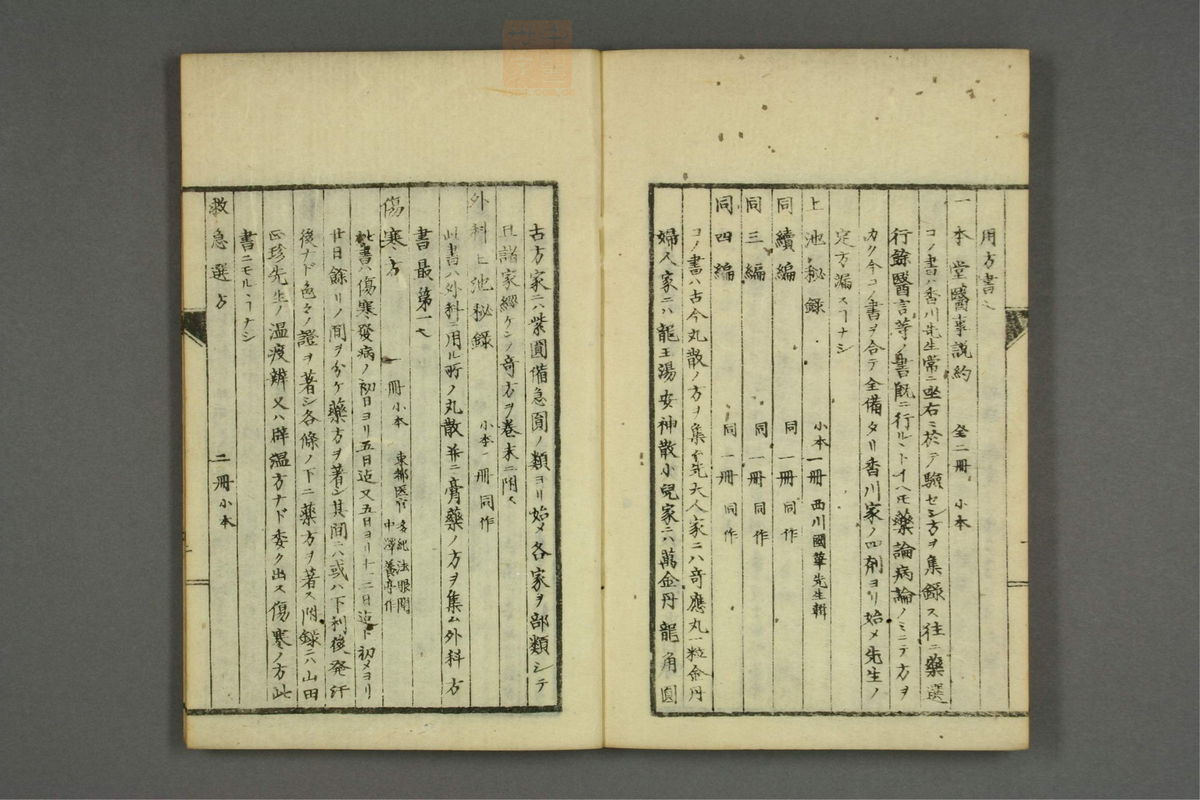 用方書之
一本堂醫事説約　全二冊　小本
コノ書ハ香川先生常ニ座右ニ於テ驗セシ方ヲ集録ス往ニ藥選
行餘醫言等ノ書既ニ行ルトイヘモ藥論病論ノミニテ方ヲ
カク今コノ書ヲ合テ全備タリ香川家ノ四劑ヨリ始メ先生ノ
定方漏スヿナシ
上池秘録　小本一冊　西川國華先生輯
同續編　同一冊　同作
同三編　同一冊　同作
同四編　同一冊　同作
コノ書ハ古今丸散ノ方ヲ集ム先大人家ニハ奇應丸一粒金丹
婦人家ニハ龍王湯安神散小兒家ニハ萬金丹龍角圓
古方家ニハ紫圓備急圓ノ類ヨリ始メ各家ヲ部類シテ
且諸家經ケンノ奇方ヲ巻末ニ附ス
外科上池秘録　小本一冊　同作
此書ハ外科ニ用ル所ノ丸散并ニ膏藥ノ方ヲ集ム外科方
書最第一也
傷寒方　一冊小本　東都医官多紀法眼閲　中澤養亭作
此書ハ傷寒發病ノ初日ヨリ五日迄又五日ヨリ十二日迄ト初メヨリ
廿日餘リノ間ヲ分ケ藥方ヲ著シ其間ニハ或ハ下利後発汗
後ナド色々ノ證ヲ著シ各條ノ下ニ藥方ヲ著ス附録ニハ山田
正珍先生ノ温疫辨又ハ辟温方ナド委ク出ス傷寒ノ方此
書ニモルヽヿナシ
救急選方　二冊小本